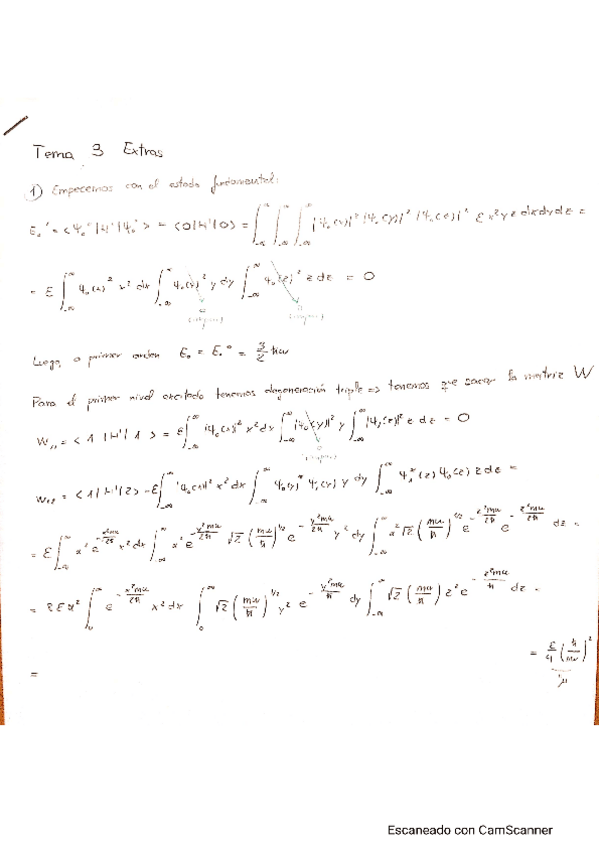 Tema 3 Extras
1) Empecemos con el estado fundamental:
E₀' = <Ψ₀⁰|H'|Ψ₀⁰> = <0|H'|0> = ∫_{-∞}^{∞} ∫_{-∞}^{∞} ∫_{-∞}^{∞} |Ψ₀(x)|² |Ψ₀(y)|² |Ψ₀(z)|² ε x² y z dx dy dz =
= ε ∫_{-∞}^{∞} Ψ₀(x)² x² dx ∫_{-∞}^{∞} Ψ₀(y)² y dy ∫_{-∞}^{∞} Ψ₀(z)² z dz = 0
Luego, a primer orden E₀ = E₀⁰ = 3/2 ħω
Para el primer nivel excitado tenemos degeneración triple => tenemos que sacar la matriz W
W₁₁ = <1|H'|1> = ε ∫_{-∞}^{∞} |Ψ₀(x)|² x² dx ∫_{-∞}^{∞} |Ψ₀(y)|² y ∫_{-∞}^{∞} |Ψ₁(z)|² z dz = 0
W₁₂ = <1|H'|2> = ε ∫_{-∞}^{∞} |Ψ₀(x)|² x² dx ∫_{-∞}^{∞} Ψ₀(y)* Ψ₁(y) y dy ∫_{-∞}^{∞} Ψ₁*(z) Ψ₀(z) z dz =
= ε ∫_{-∞}^{∞} e x² dx ∫_{-∞}^{∞} √2 (mω/ħ)^{1/2} e y² dy ∫_{-∞}^{∞} √2 (mω/ħ)^{1/2} e e dz =
∫_{0}^{∞} e x² dx ∫_{0}^{∞} √2 (mω/ħ)^{1/2} y² e dy ∫_{-∞}^{∞} √2 (mω/ħ) z² e dz =
= ε/4 (ħ/mω)²
=
μ
Escaneado con CamScanner